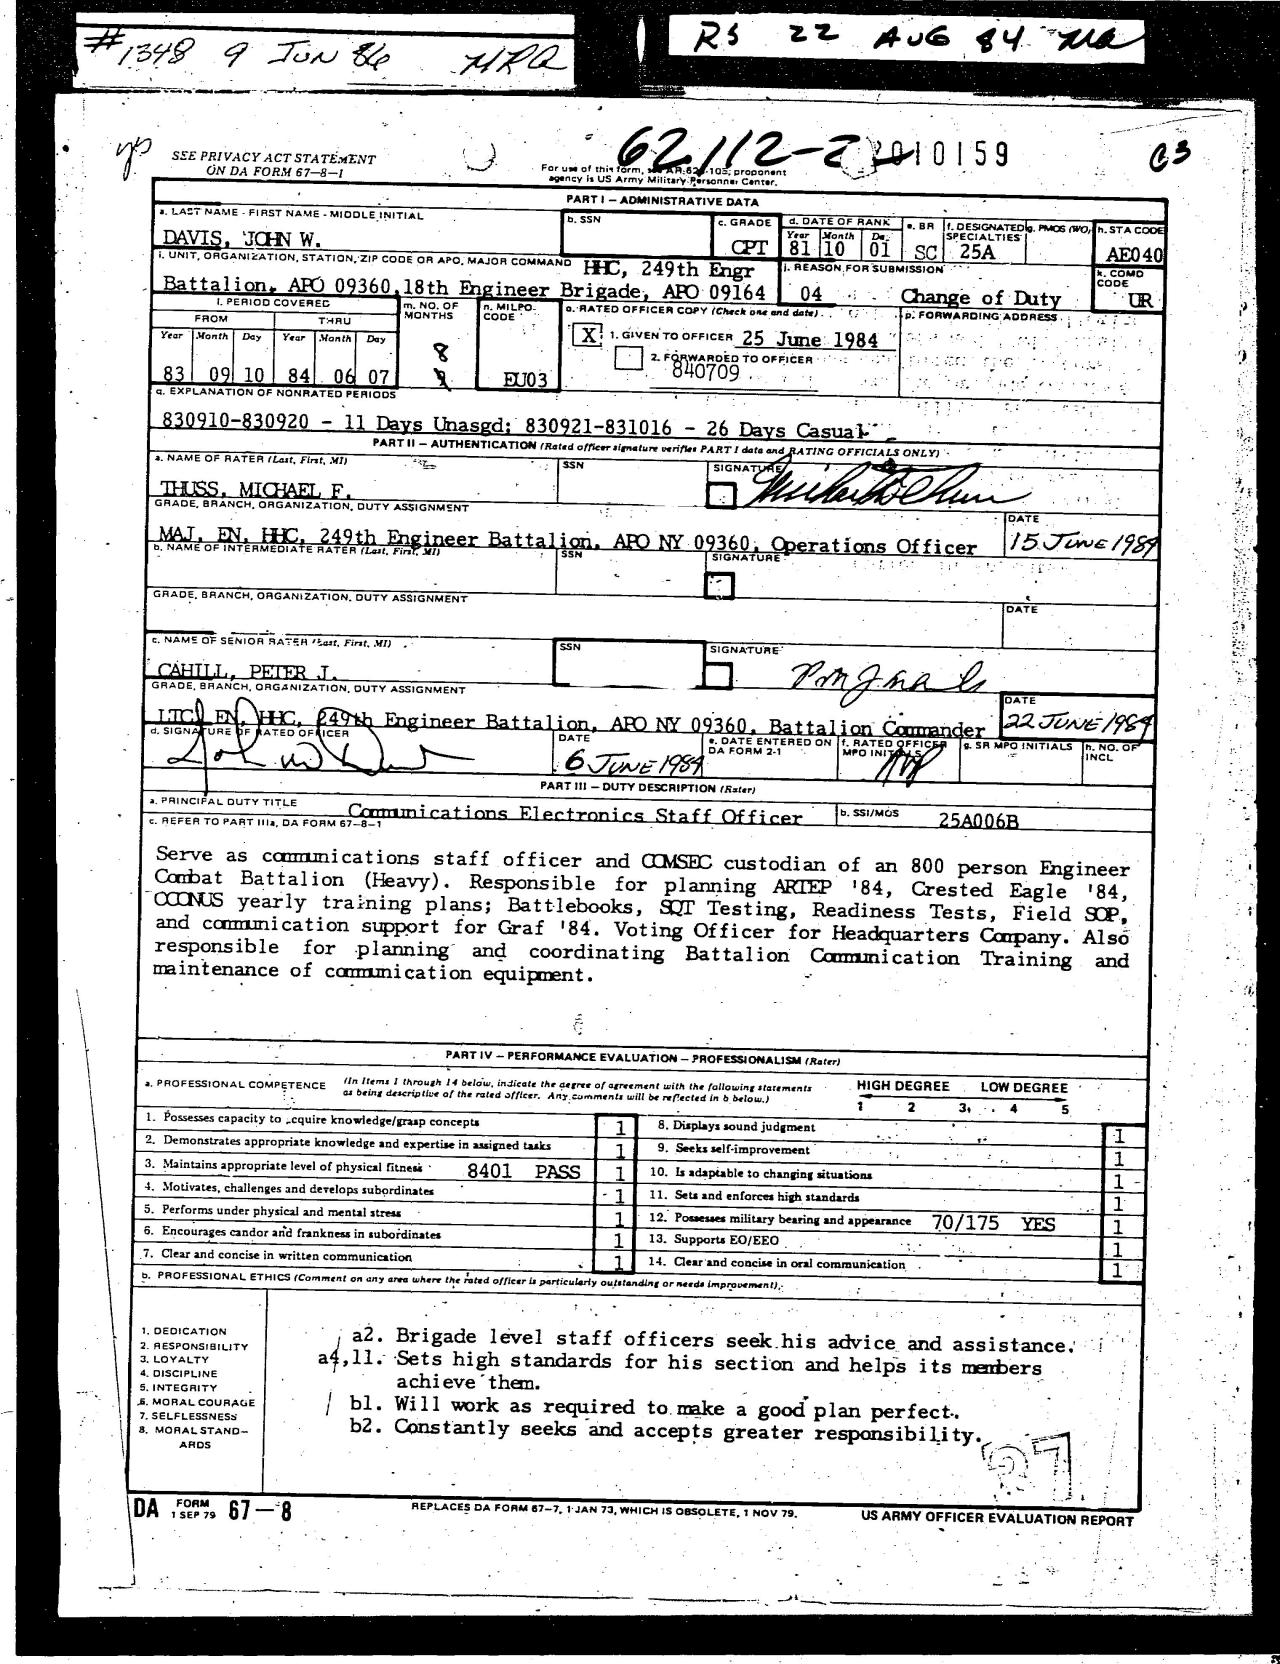 #1348 9 JUN 86 MRA
RS 22 AUG 84 MA
SEE PRIVACY ACT STATEMENT
ON DA FORM 67-8-1
62112-2
10159
For use of this form, see AR 623-105; proponent
agency is US Army Military Personnel Center.
PART I - ADMINISTRATIVE DATA
a. LAST NAME - FIRST NAME - MIDDLE INITIAL
DAVIS, JOHN W.
b. SSN
c. GRADE
CPT
d. DATE OF RANK
Year Month Day
81 10 01
e. BR
SC
f. DESIGNATED
SPECIALTIES
25A
g. PMOS (WO)
h. STA CODE
AE040
i. UNIT, ORGANIZATION, STATION, ZIP CODE OR APO, MAJOR COMMAND
HHC, 249th Engr
Battalion, APO 09360, 18th Engineer Brigade, APO 09164
j. REASON FOR SUBMISSION
04 Change of Duty
k. COMD
CODE
UR
l. PERIOD COVERED
FROM THRU
Year Month Day Year Month Day
83 09 10 84 06 07
m. NO. OF
MONTHS
8
9
n. MILPO
CODE
EU03
o. RATED OFFICER COPY (Check one and date)
X 1. GIVEN TO OFFICER 25 June 1984
2. FORWARDED TO OFFICER
840709
p. FORWARDING ADDRESS
q. EXPLANATION OF NONRATED PERIODS
830910-830920 - 11 Days Unasgd; 830921-831016 - 26 Days Casual
PART II - AUTHENTICATION (Rated officer signature verifies PART I data and RATING OFFICIALS ONLY)
a. NAME OF RATER (Last, First, MI)
SSN
SIGNATURE
THUSS, MICHAEL F.
GRADE, BRANCH, ORGANIZATION, DUTY ASSIGNMENT
DATE
MAJ, EN, HHC, 249th Engineer Battalion, APO NY 09360, Operations Officer
15 JUNE 1984
b. NAME OF INTERMEDIATE RATER (Last, First, MI)
SSN
SIGNATURE
GRADE, BRANCH, ORGANIZATION, DUTY ASSIGNMENT
DATE
c. NAME OF SENIOR RATER (Last, First, MI)
SSN
SIGNATURE
CAHILL, PETER J.
GRADE, BRANCH, ORGANIZATION, DUTY ASSIGNMENT
DATE
LTC, EN, HHC, 249th Engineer Battalion, APO NY 09360, Battalion Commander
22 JUNE 1984
d. SIGNATURE OF RATED OFFICER
DATE
6 JUNE 1984
e. DATE ENTERED ON
DA FORM 2-1
f. RATED OFFICER
MPO INITIALS
g. SR MPO INITIALS
h. NO. OF
INCL
PART III - DUTY DESCRIPTION (Rater)
a. PRINCIPAL DUTY TITLE
Communications Electronics Staff Officer
b. SSI/MOS
25A006B
c. REFER TO PART IIIa, DA FORM 67-8-1
Serve as communications staff officer and COMSEC custodian of an 800 person Engineer
Combat Battalion (Heavy). Responsible for planning ARTEP '84, Crested Eagle '84,
OCONUS yearly training plans; Battlebooks, SQT Testing, Readiness Tests, Field SOP,
and communication support for Graf '84. Voting Officer for Headquarters Company. Also
responsible for planning and coordinating Battalion Communication Training and
maintenance of communication equipment.
PART IV - PERFORMANCE EVALUATION - PROFESSIONALISM (Rater)
a. PROFESSIONAL COMPETENCE
(In Items 1 through 14 below, indicate the degree of agreement with the following statements
as being descriptive of the rated officer. Any comments will be reflected in b below.)
HIGH DEGREE LOW DEGREE
1 2 3 4 5
1. Possesses capacity to acquire knowledge/grasp concepts 1
2. Demonstrates appropriate knowledge and expertise in assigned tasks 1
3. Maintains appropriate level of physical fitness 8401 PASS 1
4. Motivates, challenges and develops subordinates 1
5. Performs under physical and mental stress 1
6. Encourages candor and frankness in subordinates 1
7. Clear and concise in written communication 1
8. Displays sound judgment 1
9. Seeks self-improvement 1
10. Is adaptable to changing situations 1
11. Sets and enforces high standards 1
12. Possesses military bearing and appearance 70/175 YES 1
13. Supports EO/EEO 1
14. Clear and concise in oral communication 1
b. PROFESSIONAL ETHICS (Comment on any area where the rated officer is particularly outstanding or needs improvement)
1. DEDICATION
2. RESPONSIBILITY
3. LOYALTY
4. DISCIPLINE
5. INTEGRITY
6. MORAL COURAGE
7. SELFLESSNESS
8. MORAL STAND-
ARDS
a2. Brigade level staff officers seek his advice and assistance.
a4,11. Sets high standards for his section and helps its members
achieve them.
b1. Will work as required to make a good plan perfect.
b2. Constantly seeks and accepts greater responsibility.
27
DA FORM 67-8
1 SEP 79
REPLACES DA FORM 67-7, 1 JAN 73, WHICH IS OBSOLETE, 1 NOV 79.
US ARMY OFFICER EVALUATION REPORT